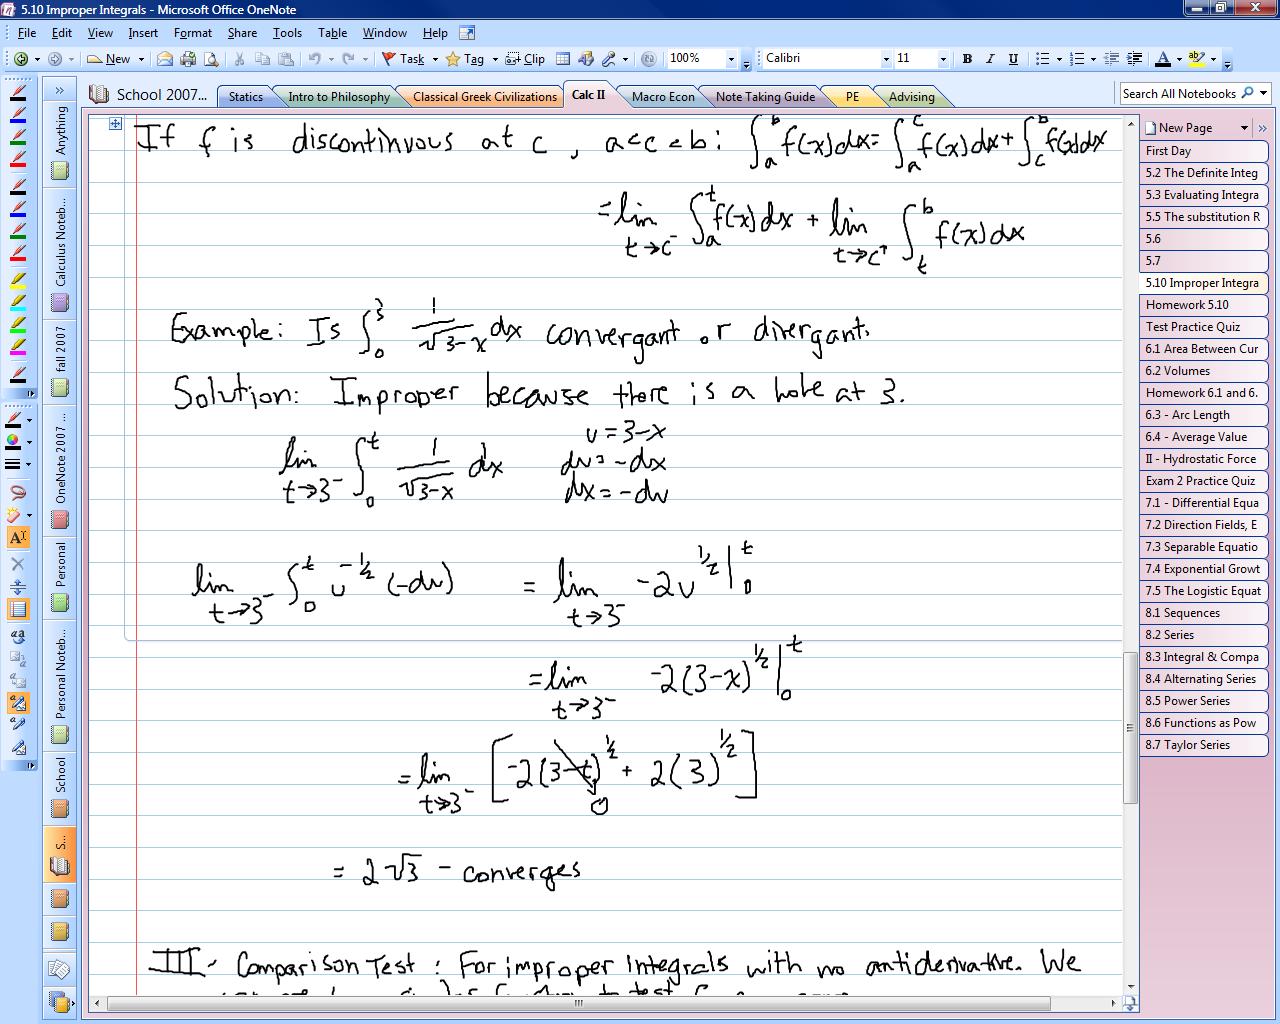 5.10 Improper Integrals - Microsoft Office OneNote
File Edit View Insert Format Share Tools Table Window Help
New Task Tag Clip 100% Calibri 11 B I U A
School 2007... Statics Intro to Philosophy Classical Greek Civilizations Calc II Macro Econ Note Taking Guide PE Advising
Search All Notebooks
Anything
Calculus Noteb...
fall 2007
OneNote 2007 ...
Personal
Personal Noteb...
School
S...
If f is discontinuous at c, a<c<b: ∫_a^b f(x)dx = ∫_a^c f(x)dx + ∫_c^b f(x)dx
= lim_{t→c⁻} ∫_a^t f(x)dx + lim_{t→c⁺} ∫_t^b f(x)dx
Example: Is ∫_0^3 1/√(3-x) dx convergant or divergant.
Solution: Improper because there is a hole at 3.
lim_{t→3⁻} ∫_0^t 1/√(3-x) dx
u = 3-x
du = -dx
dx = -du
lim_{t→3⁻} ∫_0^t u^{-1/2} (-du) = lim_{t→3⁻} -2u^{1/2} |_0^t
= lim_{t→3⁻} -2(3-x)^{1/2} |_0^t
= lim_{t→3⁻} [-2(3-t)^{1/2} + 2(3)^{1/2}]
0
= 2√3 - converges
III. Comparison Test: For improper integrals with no antiderivative. We
New Page
First Day
5.2 The Definite Integ
5.3 Evaluating Integra
5.5 The substitution R
5.6
5.7
5.10 Improper Integra
Homework 5.10
Test Practice Quiz
6.1 Area Between Cur
6.2 Volumes
Homework 6.1 and 6.
6.3 - Arc Length
6.4 - Average Value
II - Hydrostatic Force
Exam 2 Practice Quiz
7.1 - Differential Equa
7.2 Direction Fields, E
7.3 Separable Equatio
7.4 Exponential Growt
7.5 The Logistic Equat
8.1 Sequences
8.2 Series
8.3 Integral & Compa
8.4 Alternating Series
8.5 Power Series
8.6 Functions as Pow
8.7 Taylor Series